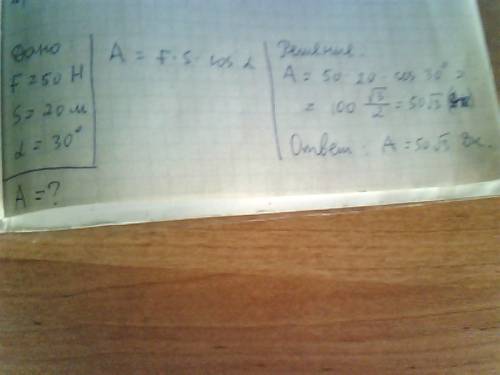 Дано
F = 50 Н
S = 20 м
α = 30°
A = ?
A = F · S · cos α
Решение.
A = 50 · 20 · cos 30° =
= 100 √3/2 = 50√3
Ответ: A = 50√3 Дж.